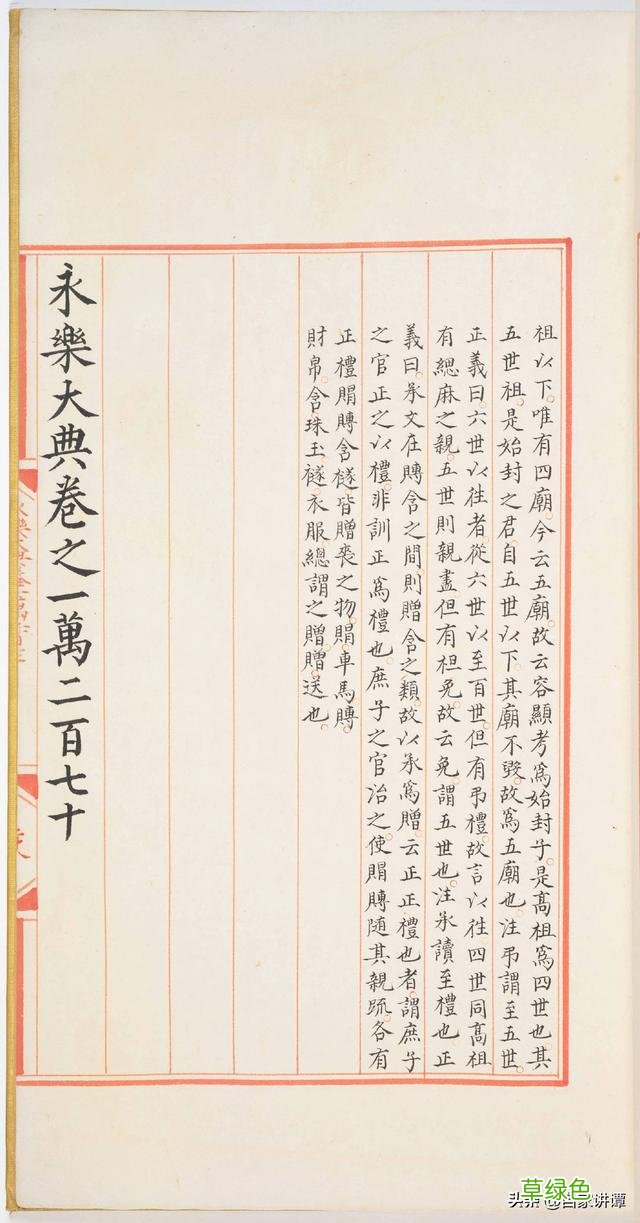 祖以下唯有四廟今云五廟故云容顯考爲始封子是髙祖爲四世也其
五世祖是始封之君自五世以下其廟不毀故爲五廟也注弔謂至五世
正義曰六世以徃者從六世以至百世但有弔禮故言以徃四世同髙祖
有緦麻之親五世則親盡但有袒免故云免謂五世也注承讀至禮也正
義曰承文在賻含之間則贈含之類故以承爲贈云正正禮也者謂庶子
之官正之以禮非訓正爲禮也庶子之官治之使賵賻随其親疏各有
正禮賵賻含襚皆贈喪之物賵車馬賻
財帛含珠玉襚衣服總謂之贈贈送也
永樂大典卷之一萬二百七十
草绿色
头条 @百家讲谭